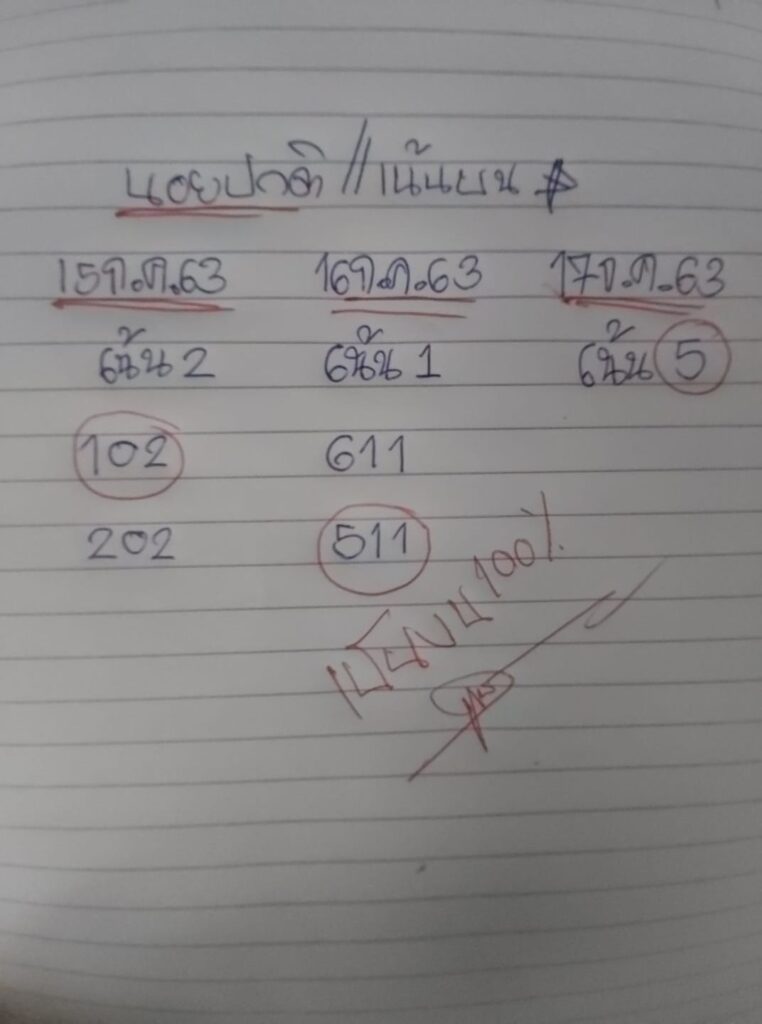 นอยปกติ // เน้นบน
15ก.ค.63 16ก.ค.63 17ก.ค.63
เน้น 2 เน้น 1 เน้น 5
102 611
202 511
100%